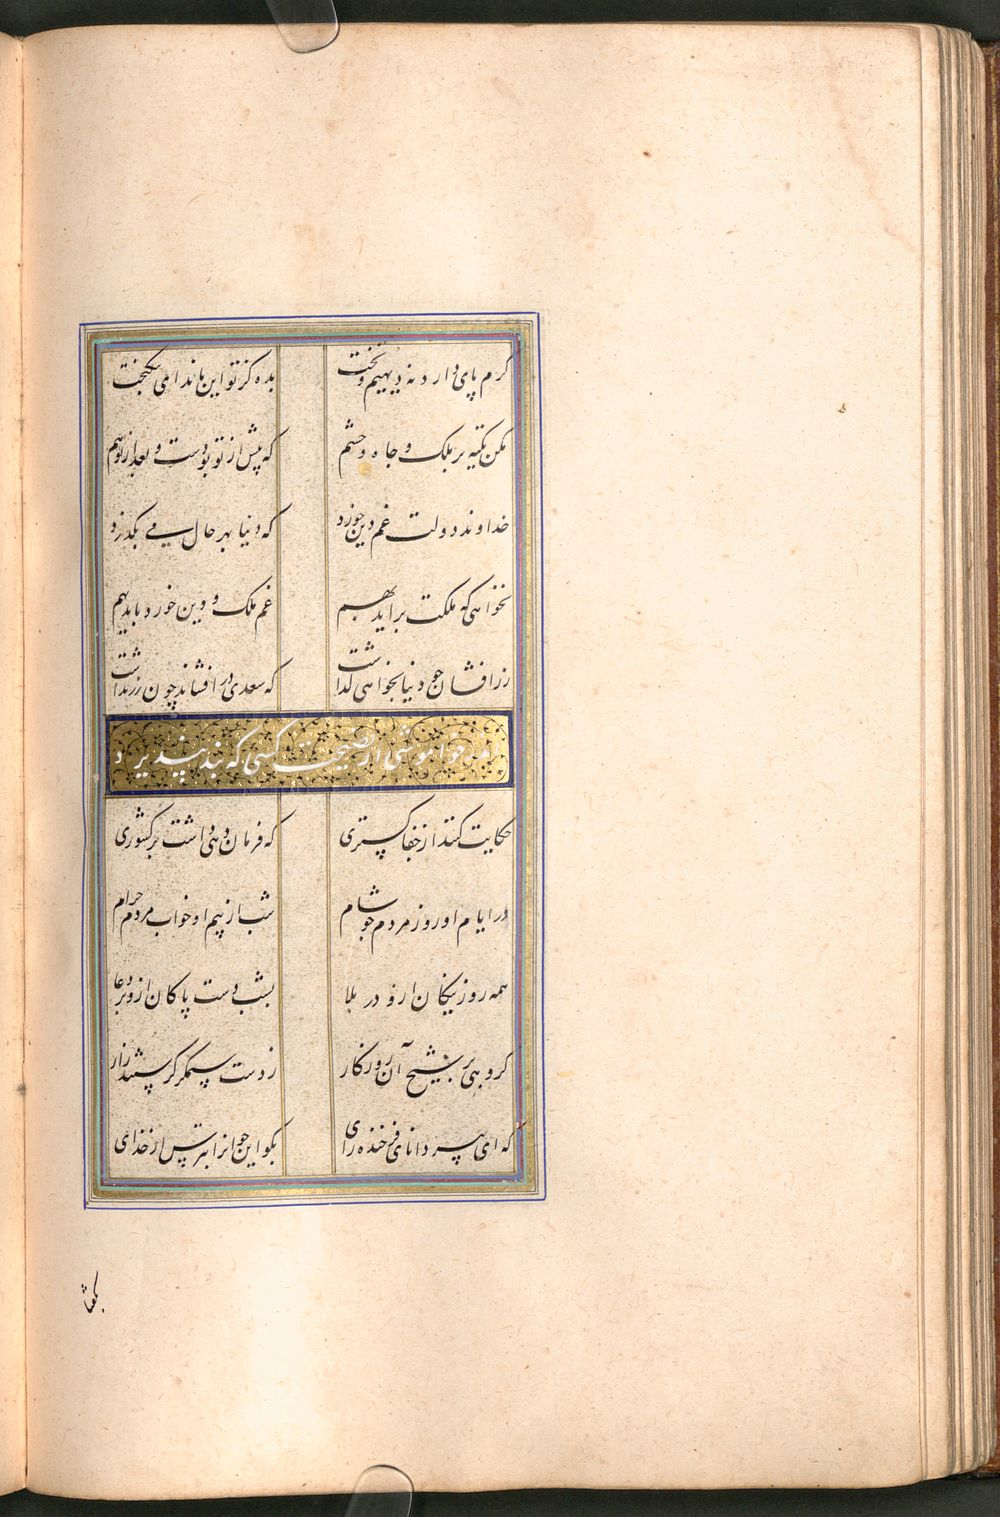 کرم پای دارد نه دیهیم و تخت بده کز تو این ماند ای نیکبخت
مکن تکیه بر ملک و جاه و حشم که پیش از تو بودست و بعد از تو هم
خداوند دولت غم دین خورد که دنیا بهر حال می بگذرد
نخواهی که ملکت براید بهم غم ملک و دین خورد باید بهم
زرافشان چو دنیا بخواهی گذاشت که سعدی درافشاند چون زر نداشت
اندر خواموشی از نصیحت کسی که پند نپذیرد
حکایت کنند از جفاگستری که فرمان دهی داشت بر کشوری
در ایام او روز مردم چو شام شب از بیم او خواب مردم حرام
همه روز نیکان ازو در بلا بشب دست پاکان ازو بر دعا
گروهی بر شیخ آن روزگار ز دست ستمگر گرستند زار
که ای پیر دانای فرخنده رای بگو این جوانرا بترس از خدای
بگفتا